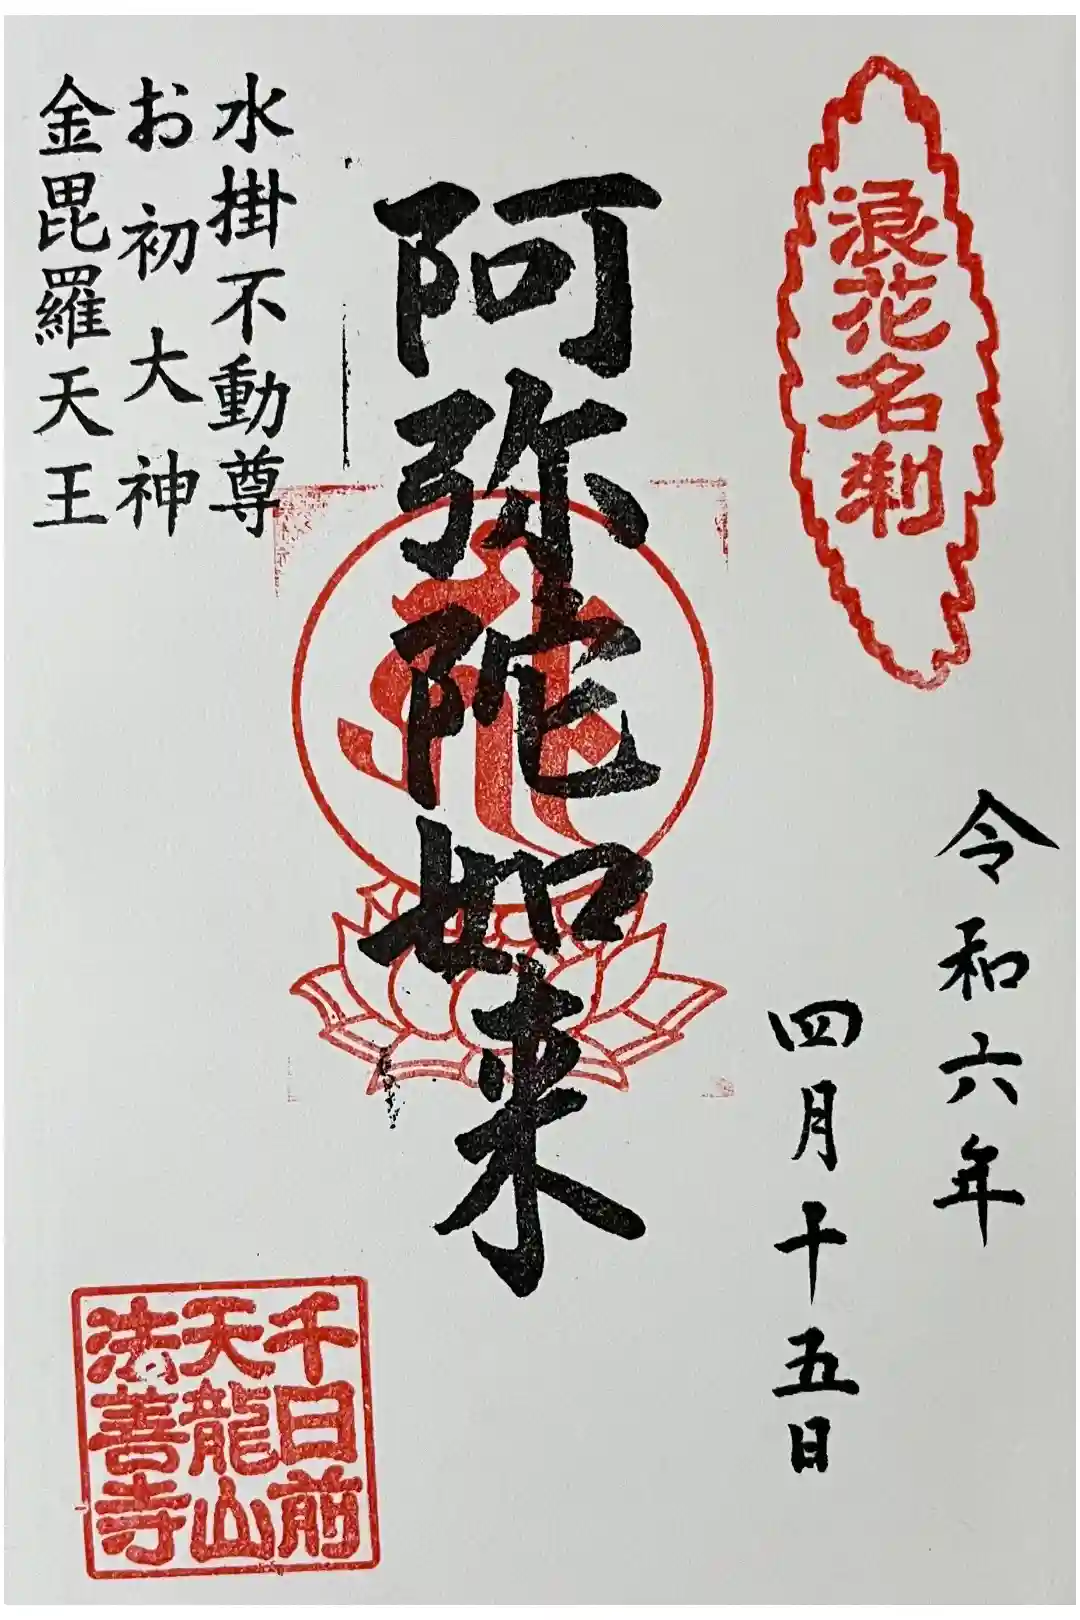 浪花名刹
令和六年
四月十五日
阿弥陀如来
水掛不動尊
お初大神
金毘羅天王
千日前
天龍山
法善寺